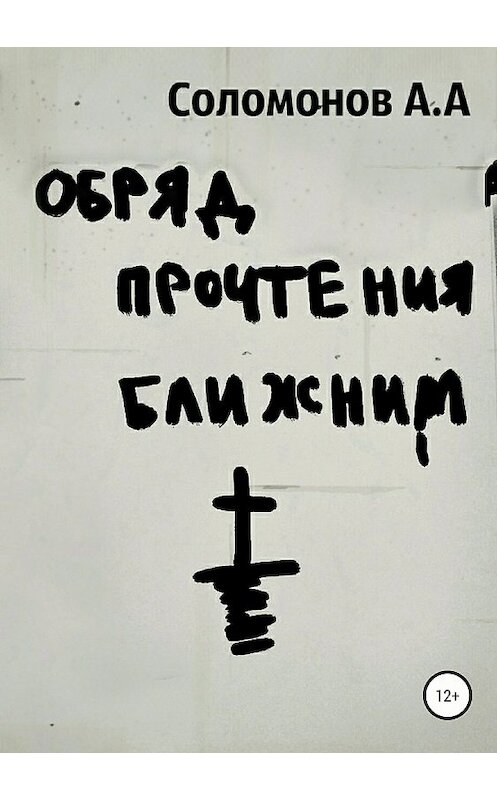 Соломонов А.А
ОБРЯД
ПРОЧТЕНИЯ
БЛИЖНИМ
12+